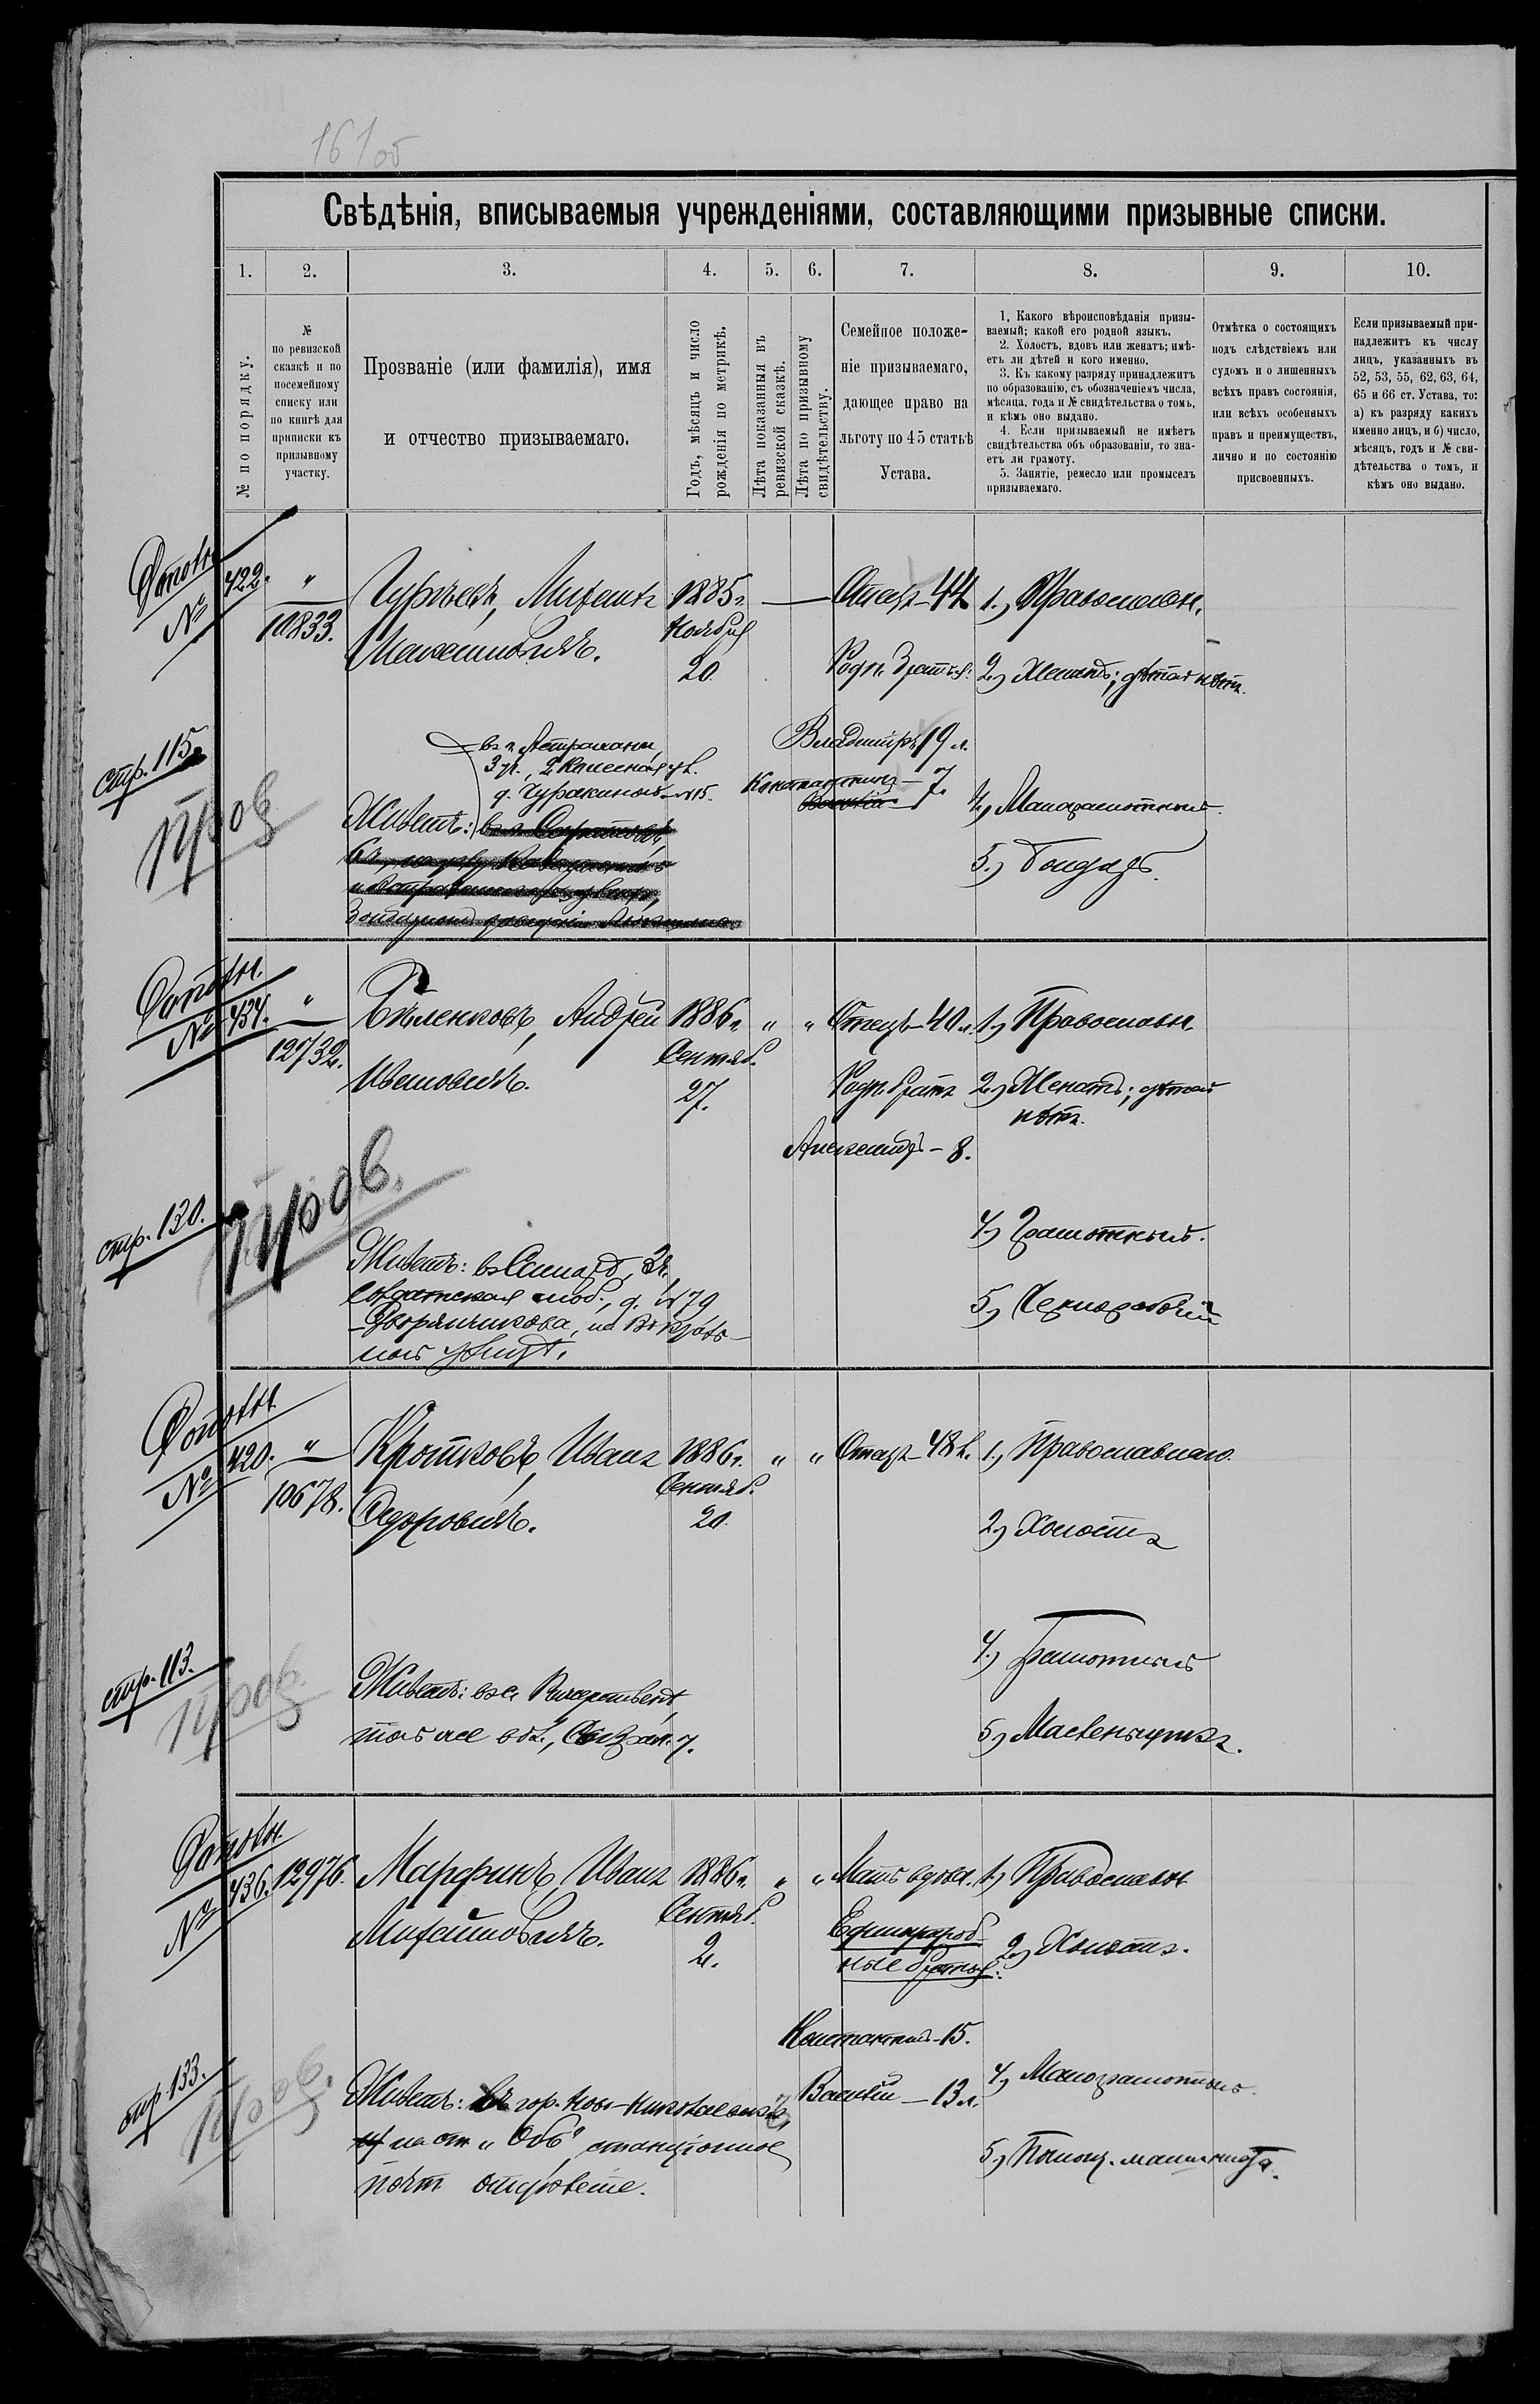 161об
Свѣдѣнія, вписываемыя учрежденіями, составляющими призывные списки.
1. 2. 3. 4. 5. 6. 7. 8. 9. 10.
№ по порядку.
№
по ревизской
сказкѣ и по
посемейному
списку или
по книгѣ для
приписки къ
призывному
участку.
Прозваніе (или фамилія), имя
и отчество призываемаго.
Годъ, мѣсяцъ и число
рожденія по метрикѣ.
Лѣта показанныя въ
ревизской сказкѣ.
Лѣта по призывному
свидѣтельству.
Семейное положе-
ніе призываемаго,
дающее право на
льготу по 45 статьѣ
Устава.
1. Какого вѣроисповѣданія призы-
ваемый; какой его родной языкъ.
2. Холостъ, вдовъ или женатъ; имѣ-
етъ ли дѣтей и кого именно.
3. Къ какому разряду принадлежитъ
по образованію, съ обозначеніемъ числа,
мѣсяца, года и № свидѣтельства о томъ,
и кѣмъ оно выдано.
4. Если призываемый не имѣетъ
свидѣтельства объ образованіи, то зна-
етъ ли грамоту.
5. Занятіе, ремесло или промыселъ
призываемаго.
Отмѣтка о состоящихъ
подъ слѣдствіемъ или
судомъ и о лишенныхъ
всѣхъ правъ состоянія,
или всѣхъ особенныхъ
правъ и преимуществъ,
лично и по состоянію
присвоенныхъ.
Если призываемый при-
надлежитъ къ числу
лицъ, указанныхъ въ
52, 53, 55, 62, 63, 64,
65 и 66 ст. Устава, то:
а) къ разряду какихъ
именно лицъ, и б) число,
мѣсяцъ, годъ и № сви-
дѣтельства о томъ, и
кѣмъ оно выдано.
№ 422. "
10833.
Михаилъ
1885 г.
Ноября
20
Отецъ - 44
Родн. братья:
Владиміръ 19 л.
Константинъ - 7.
1.) Православн.
2.) Женатъ; дѣтей нѣтъ.
4.) Малограмотный.
5.) Бондарь.
стр. 115
Пров
въ г. Астрахани,
3 уч.,
№ 15.
Живетъ:
№ 434. "
12732.
Бѣленковъ, Андрей
Ивановичъ.
1886 г. " "
Сентяб.
27.
Отецъ - 40 л.
Родн. братъ
Александръ - 8.
1.) Православн.
2.) Женатъ; дѣтей
нѣтъ.
4.) Грамотный.
5.) Чернорабочій
стр. 130.
Пров.
Живетъ: въ Самарѣ, 3 ч.,
Солдатская слоб., д. № 79
Дворянчикова,
№ 420. "
10678.
Кротковъ, Иванъ
Федоровичъ.
1886 г. " "
Сентяб.
20.
Отецъ - 48 л.
1.) Православнаго.
2.) Холостъ
4.) Грамотный
5.)
стр. 113.
Пров.
Живетъ: въ с.
№ 436. 12976.
Марфинъ, Иванъ
Михайловичъ.
1886 г. " "
Сентяб.
2.
Мать вдова.
Единоутроб-
ные братья:
Константинъ - 15.
Василій - 13 л.
1.) Православн
2.) Холостъ.
4.) Малограмотный.
5.) Помощ. машиниста.
стр. 133.
Пров.
Живетъ: въ гор. Ново-Николаевскѣ,
на ст. „Обь“ станціонное
почт отдѣленіе.